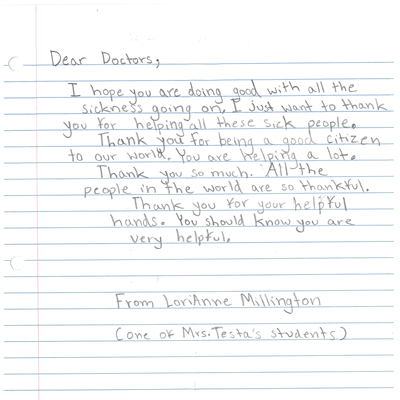 Dear Doctors,
I hope you are doing good with all the
sickness going on. I just want to thank
you for helping all these sick people.
Thank you for being a good citizen
to our world. You are helping a lot.
Thank you so much. All the
people in the world are so thankful.
Thank you for your helpful
hands. You should know you are
very helpful.
From LoriAnne Millington
(one of Mrs. Testa's students)